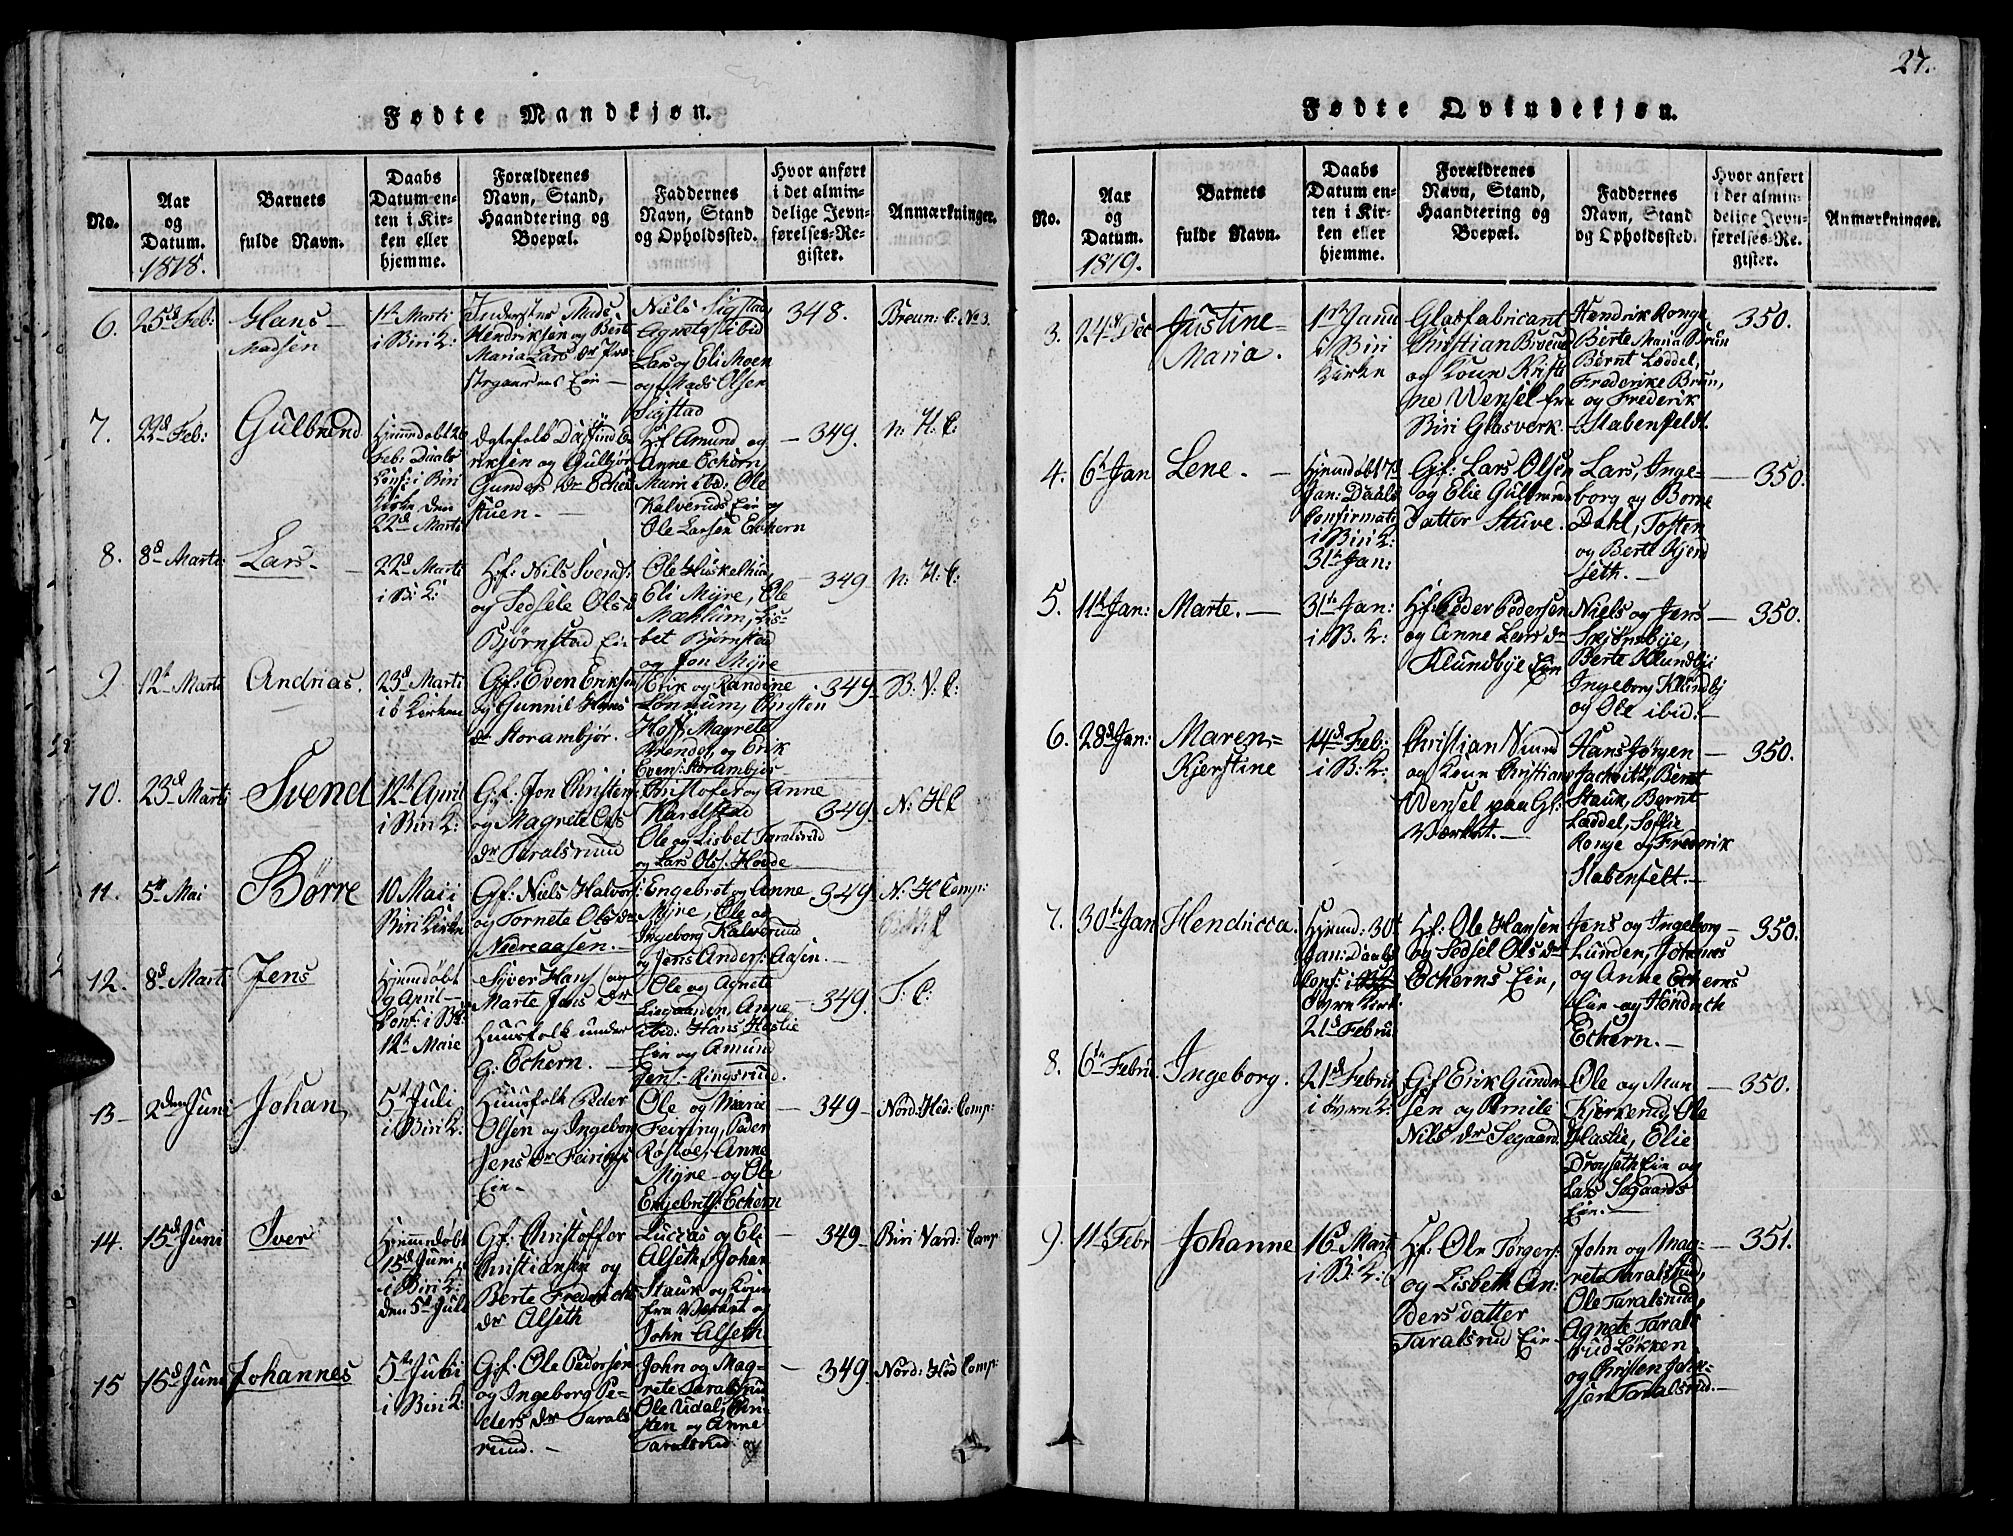 27.
Fødte Mandkjøn.
No.
Aar
og
Datum.
1818.
Barnets
fulde Navn.
Daabs
Datum en-
ten i Kir-
ken eller
hjemme.
Forældrenes
Navn, Stand,
Haandtering og
Boepæl.
Faddernes
Navn, Stand
og Opholdssted.
Hvor anført
i det almin-
delige Jevn-
førelses-Re-
gister.
Anmærkninger.
6.
25d Feb:
Hans
Madsen
1te Marti
i Biri K:
Hendriksen og Berte
Maria Lars dr
Niels Sigstad
Lars og Eli Moen
og Mads Olsen
Sigstad
348.
7.
22d Feb:
Gulbrand
Hjemdøbt 26
Feb: Daabs
Conf: i Biri
Kirke den
22d Marti
Gunders dr Echer
stuen.
Gf Amund og
Anne Echern
Marie ibd: Ole
Kalveruds Eie og
Ole Larsen Echern
349.
N: H. C:
8.
8d Marti
Lars
22d Marti
i B: K:
Hf: Nils Svends:
og Sedsele Ols d
Bjørnstad Eie
Eli Mÿre, Ole
Mæhlum, Lis-
bet Bjørnstad
og Jon Mÿre
349
N: H. C:
9
12te Marti
Andrias.
23d Marti
i B Kirken
Gf: Even Eriksen
og Gunnil Hans
dr Storambjør.
Erik og Randine
Lonnum, Christen
Hoff, Magrete
og Erik
Evens: Storambjør
349
B: V: C:
10.
23d Marti
Svend
12te April
i Biri K:
Gf: Jon Christen:
og Magrete Ols
dr Taralsrund
Christofer og Anne
Karelstad
Ole og Lisbet Taralsrud
og Lars Ols: Hovde
349
N: H C
11.
5te Mai
Børre
10 Mai i
Biri Kirke
Gf: Niels Halvors:
og Tornete Ols dr
Nedreaasen.
Engebret og Anne
Mÿre, Ole og
Ingeborg Kalverud
og Jens Anders: Aasen.
349
N: H Comp:
12.
8d Marti
Jens
Hjemdøbt
9 April
Conf: i B K:
12te Maie
Syver Hans: og
Marte Jens dr
Huusfolk under
G: Echern.
Ole og Agnete
Anne
ibid: Hans Hastie
Eie og Amund
Jens: Ringsrud.
349
T: C:
13
2den Juni
Johan
5te Juli
i Biri K:
Huusfolk Peder
Olsen og Ingeborg
Jens dr Feirings
Eie
Ole og Marie
Feiring, Peder
Røstøe, Anne
Mÿre og Ole
Engebrits: Echern
349
Nord: Hed: Comp:
14.
15d Juni
Iver
Hjemdøbt
15d Juni
i Biri K:
den 5te Juli
Gf: Christoffer
Christiansen og
Berte Fredrichs
dr Alseth
Luccas og Eli
Alseth, Johan
Stauk og Kone
fra Værket og
John Alseth
349
Biri Vard: Comp
15
15d Juni
Johannes
5te Juli
i Biri K:
Gf: Ole Pedersen
og Ingeborg Pe-
ders dr Tarals
rund.
John og Mag-
rete Taralsrud
Ole Udal, Chri-
sten og Anne
Taralsrud
349
Nord: Hed Comp:
Fødte Qvindekjøn.
No.
Aar
og
Datum.
1819.
Barnets
fulde Navn.
Daabs
Datum en-
ten i Kir-
ken eller
hjemme.
Forældrenes
Navn, Stand,
Haandtering og
Boepæl.
Faddernes
Navn, Stand
og Opholdssted.
Hvor anført
i det almin-
delige Jevn-
førelses-Re-
gister.
Anmærkninger.
3.
24d Dec
Justine
Maria.
i Biri
Kirken
Glasfabricant
Christian
og Kone Kristi
ne Wensel fra
Biri Glasverk.
Hendrik Ronge
Berte Maria Brun
Bernt Læddel,
Frederike Brun,
og Frederik
Stabenfeldt.
350.
4.
6te Jan
Lene.
Hjemdøbt 7d
Jan: Daabs
Confirmate
i Biri K:
31te Jan:
Gf: Lars Olsen
og Elie Gulbrand
datter Stuve.
Lars, Inge-
borg og Børre
Dahl, Tosten
og Berte Kjend
seth.
350.
5.
11te Jan:
Marte.
31te Jan:
i B. K:
Hf: Peder Pedersen
og Anne Lars dr
Klundbÿe Eie
Niels og Jens
Skiønsbÿe,
Berte Klundbÿ
Ingeborg Klundbÿ
og Ole ibid.
350.
6.
28d Jan:
Maren
Kjerstine
14d Feb:
i B: K:
Christian
og Kone Christiane
Wensel paa Gl:
Værket.
Hans Jørgen
Bernt
Stauk, Bernt
Læddel, Soffie
Ronge og Frederik
Stabenfelt.
350.
7.
30te Jan
Hendricca.
Hjemd: 30te
Jan: Daabs
Conf: i
Øvre Kirk:
21d Febru
Hf: Ole Hansen
og Sedsel Ols dr
Echerns Eie,
Jens og Ingeborg
Lunden, Johannes
og Anne Echerns
Eie og Hendrich
Echern.
350.
8.
6te Febru
Ingeborg.
21d Febru
i øvre K:
Gf Erik Gunder
sen og Pernile
Nils dr Segaard.
Ole og Mari
Kjerkerud, Ole
Hastie, Elie
Drogseth Eie og
Lars Segaards
Eie.
350.
9.
11te Febr
Johanne
16 Mart
i B: K:
Hf: Ole Torger:
og Lisbeth An:
ders datter
Taralsrud Eie
John og Mag-
rete Taralsrud,
Ole Taralsrud
Agnete Tarals
rud Løkken
og Christen John-
sen Taralsrud.
351.